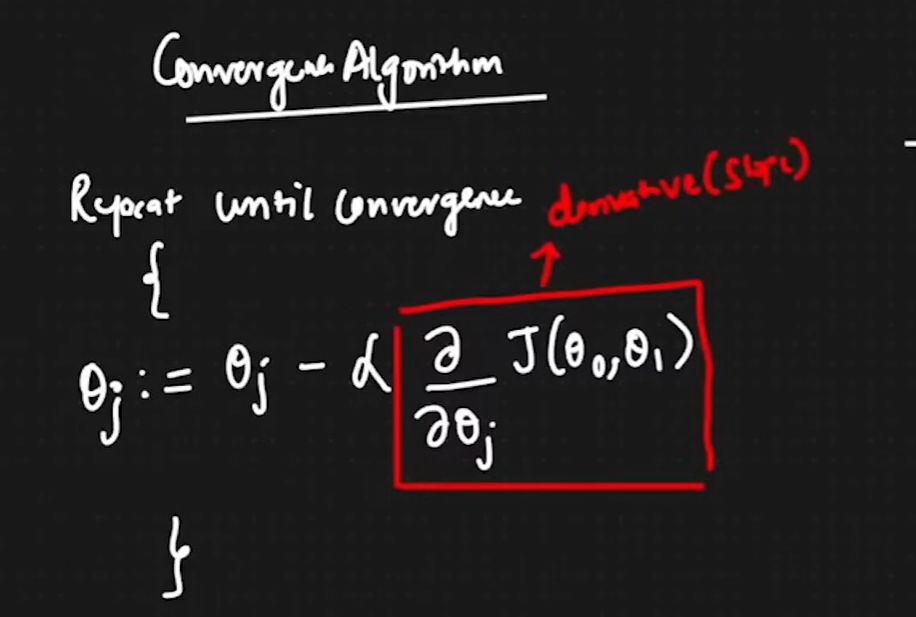 Convergence Algorithm
Repeat until convergence
derivative (slope)
{
θj := θj - α ∂/∂θj J(θ0, θ1)
}